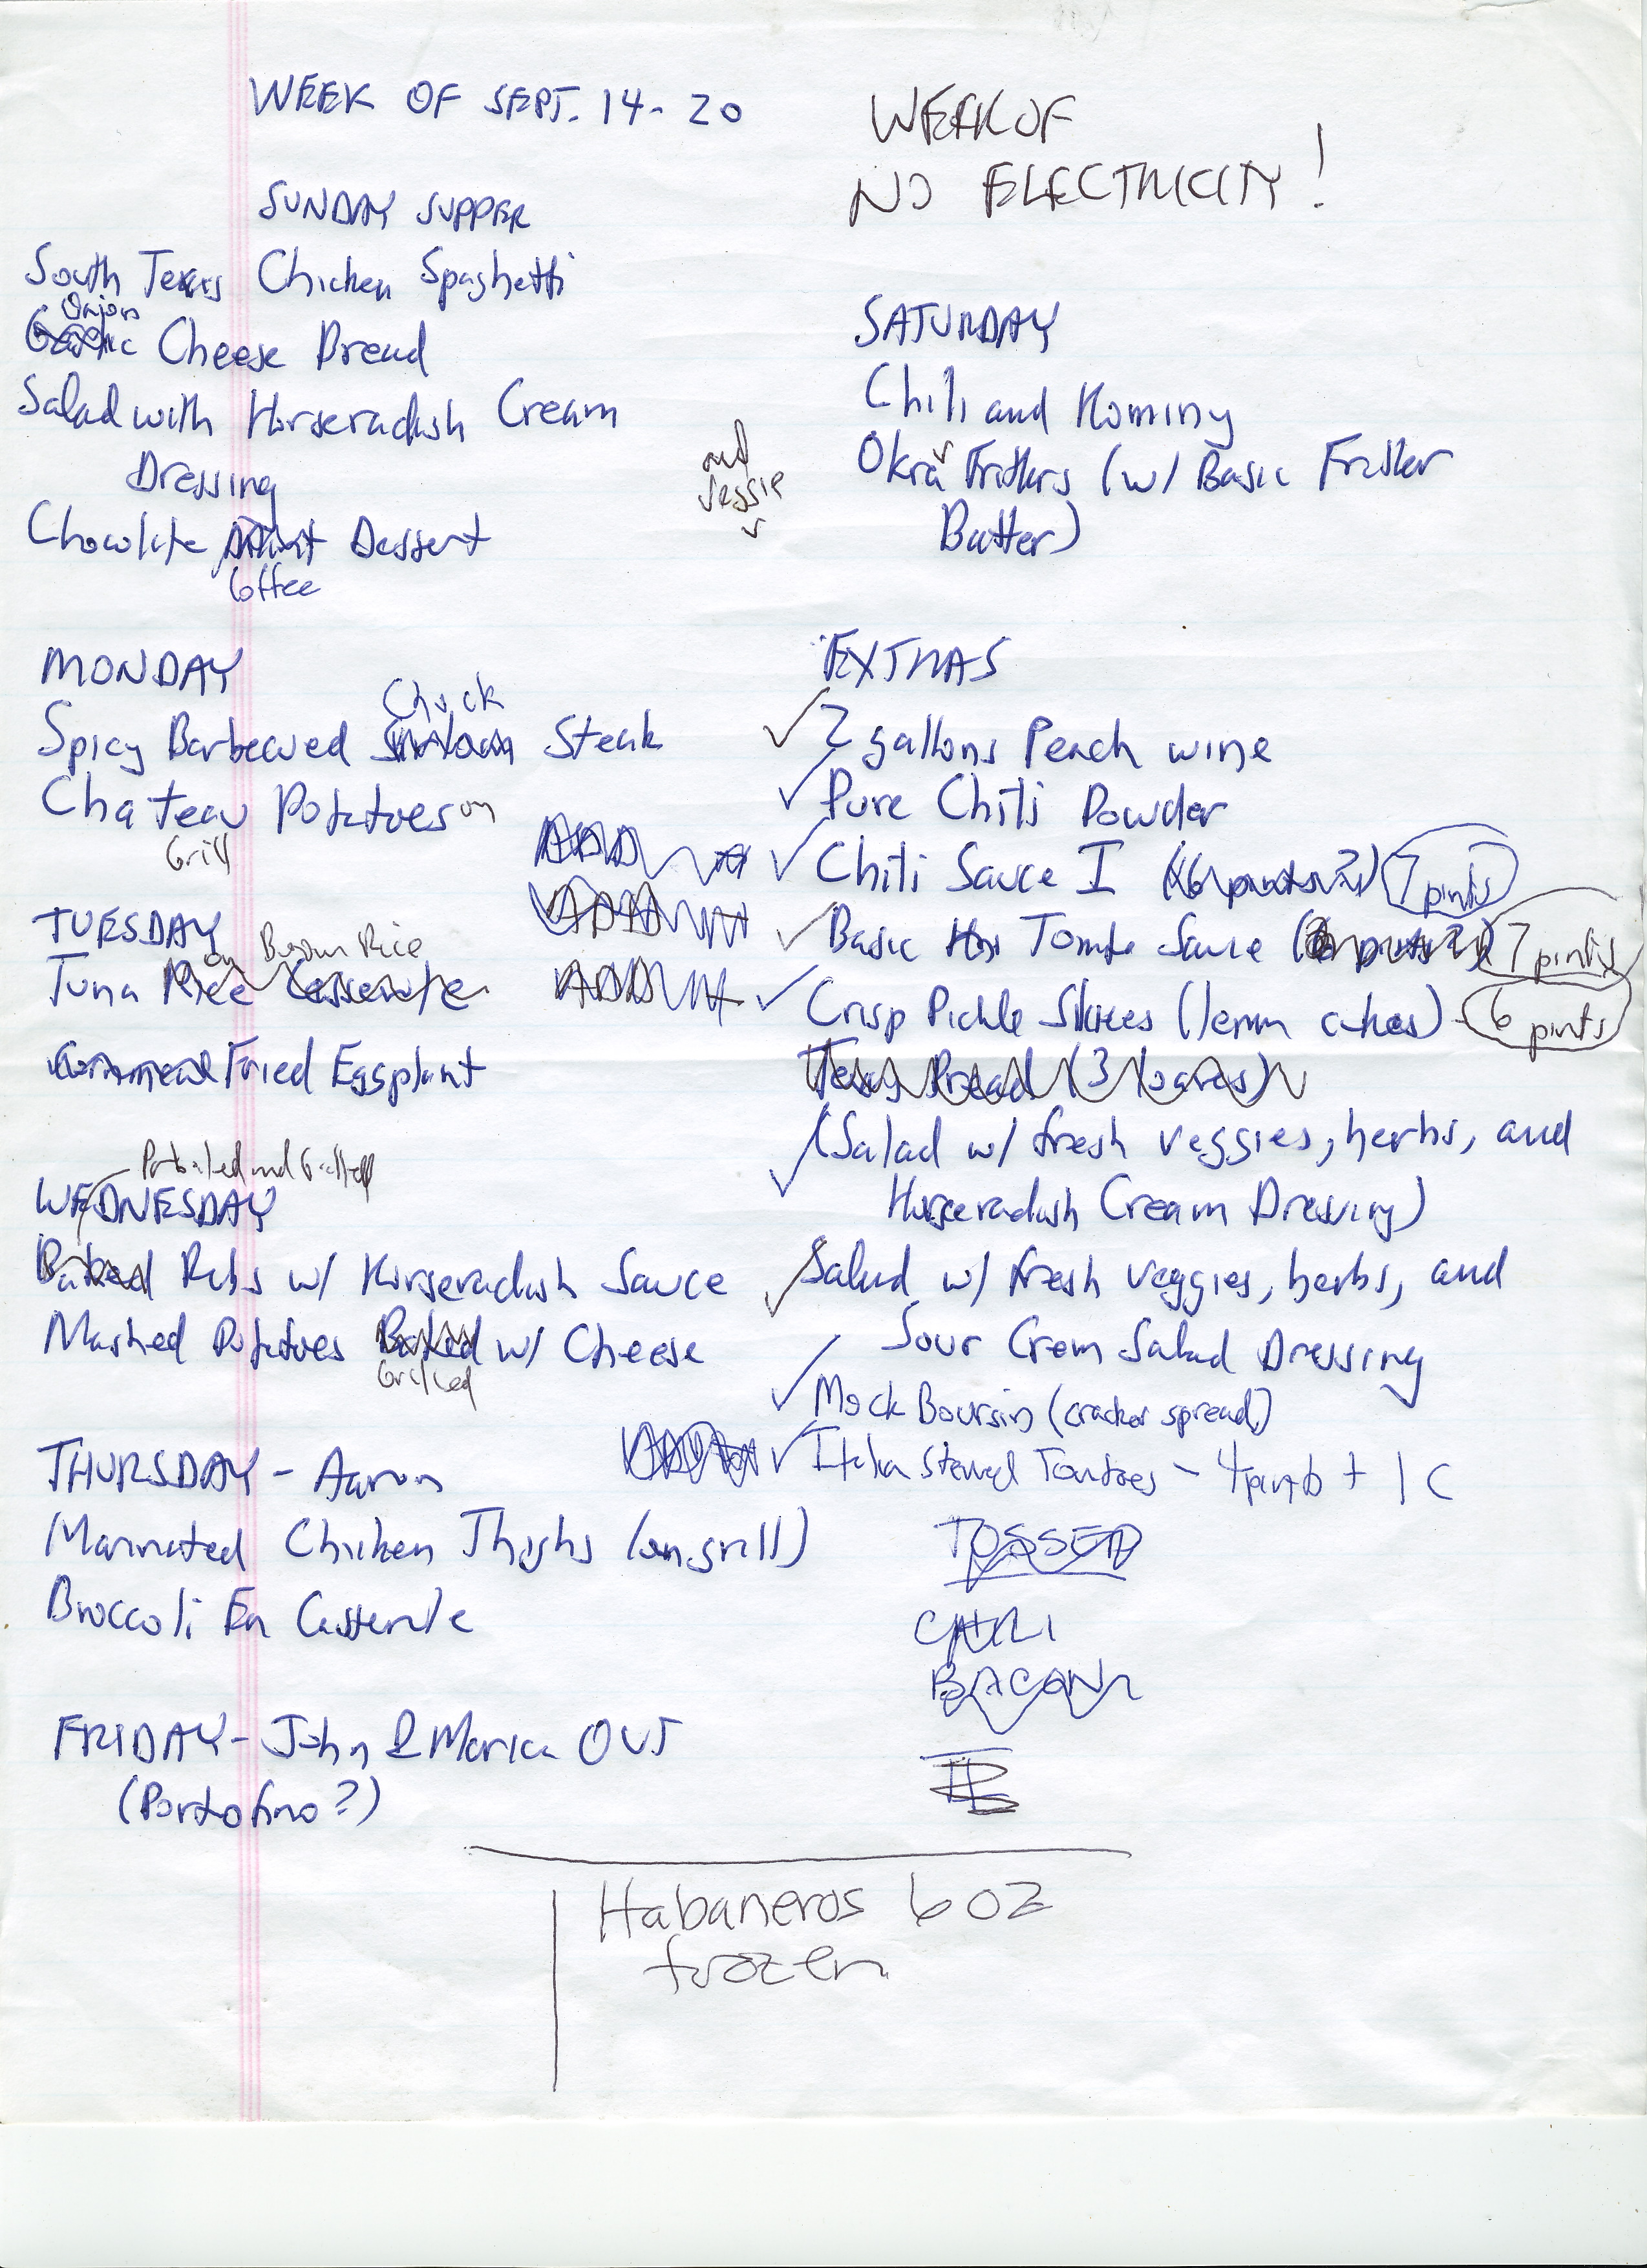 WEEK OF SEPT. 14-20
SUNDAY SUPPER
South Texas Chicken Spaghetti
Onion
Garlic Cheese Bread
Salad with Horseradish Cream
Dressing
Chocolate Dessert
Coffee
MONDAY
Chuck
Spicy Barbecued Sirloin Steak
Chateau Potatoes on
Grill
TUESDAY
on Brown Rice
Tuna Rice Casserole
Cornmeal Fried Eggplant
Parboiled and Grilled
WEDNESDAY
Baked Ribs w/ Horseradish Sauce
Mashed Potatoes Baked w/ Cheese
Grilled
THURSDAY - Aaron
Marinated Chicken Thighs (on grill)
Broccoli En Casserole
FRIDAY - John & Marica OUT
(Portofino?)
WEEK OF
NO ELECTRICITY!
SATURDAY
Chili and Hominy
and
veggie
Okra Fritters (w/ Basic Fritter
Batter)
EXTRAS
2 gallons Peach wine
Pure Chili Powder
Chili Sauce I (6 pints?) 7 pints
Basic Tomato Sauce 7 pints
Crisp Pickle Slices (lemon cukes) - 6 pints
Texas Bread (3 loaves)
(Salad w/ fresh veggies, herbs, and
Horseradish Cream Dressing)
Salad w/ fresh veggies, herbs, and
Sour Cream Salad Dressing
Mock Boursin (cracker spread)
Italian Stewed Tomatoes - 4 pints + 1 C
TOSSED
CHILI
BACON
Habaneros 6 oz
frozen